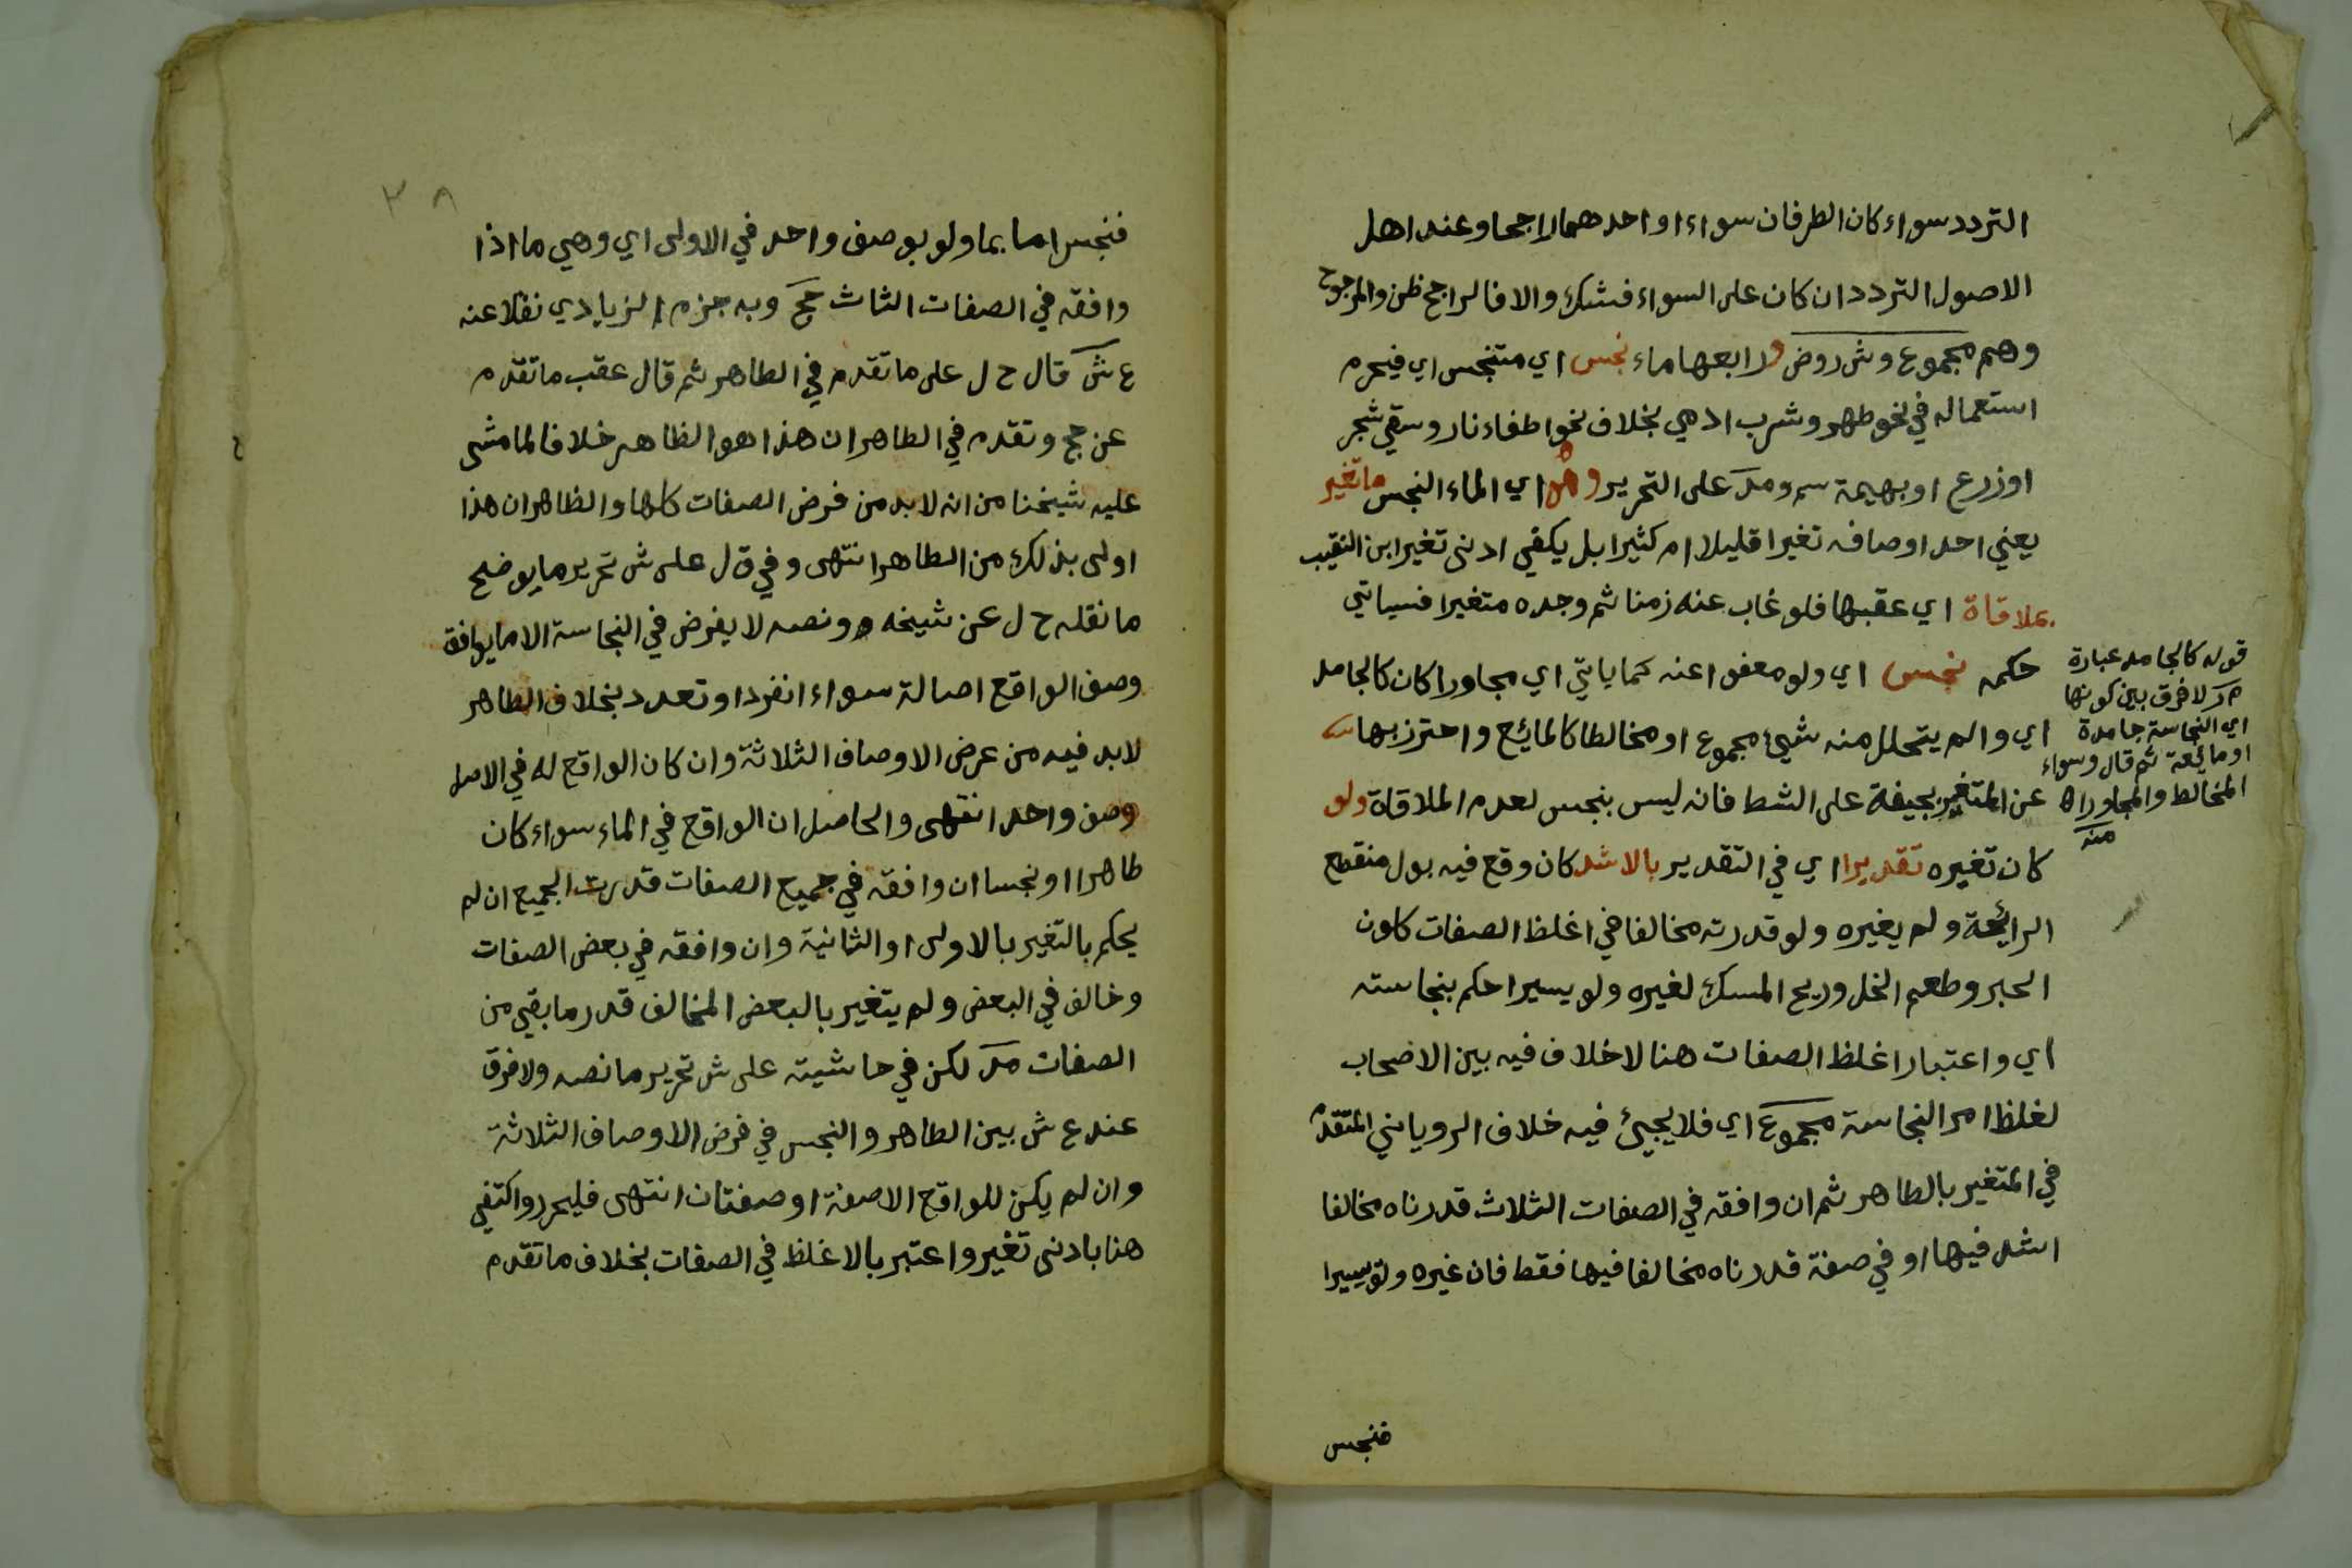 التردد سواء كان الطرفان سواء او احدهما راجحا وعند اهل
الاصول التردد ان كان على السواء فشك والا فالراجح ظن والمرجوح
وهم مجموع وش روض ورابعها ماء نجس اي متنجس اي فيحرم
استعماله في نحو طهر وشرب ادمي بخلاف نحو اطفاء نار وسقي شجر
او زرع او بهيمة سم ومد على التحرير وهو اي الماء النجس ما تغير
يعني احد اوصافه تغيرا قليلا ام كثيرا بل يكفي ادنى تغير ابن النقيب
بملاقاة اي عقبها فلو غاب عنه زمنا ثم وجده متغيرا فسياتي
حكمه نجس اي ولو معفوا عنه كما ياتي اي مجاورا كان كالجامد
اي والم يتحلل منه شيئ مجموع او مخالطا كالمائع واحترز بها
عن المتغير بجيفة على الشط فانه ليس بنجس لعدم الملاقاة ولو
كان تغيره تقديرا اي في التقدير بالاشد كان وقع فيه بول منقطع
الرائحة ولم يغيره ولو قدرته مخالفا في اغلظ الصفات كلون
الحبر وطعم الخل وريح المسك لغيره ولو يسيرا حكم بنجاسته
اي واعتبار اغلظ الصفات هنا لا خلاف فيه بين الاصحاب
لغلظ امر النجاسة مجموع اي فلا يجيئ فيه خلاف الروياني المتقدم
في المتغير بالطاهر ثم ان وافقه في الصفات الثلاث قدرناه مخالفا
اشد فيها او في صفة قدرناه مخالفا فيها فقط فان غيره ولو يسيرا
فنجس
قوله كالجامد عبارة
م ر لا فرق بين كونها
اي النجاسة جامدة
او مائعة ثم قال وسواء
المخالط والمجاور اه
منه
٣٨
فنجس اما بما ولو بوصف واحد في الاولى اي وهي ما اذا
وافقه في الصفات الثاث حج وبه جزم الزيادي نقلا عنه
ع ش قال ح ل على ما تقدم في الطاهر ثم قال عقب ما تقدم
عن حج وتقدم في الطاهر ان هذا هو الظاهر خلافا لما مشى
عليه شيخنا من انه لا بد من فرض الصفات كلها والظاهر ان هذا
اولى بذلك من الطاهر انتهى وفي ق ل على ش تحرير ما يوضح
ما نقله ح ل عن شيخه ونصه لا يفرض في النجاسة الا ما يوافق
وصف الواقع اصالة سواء انفرد او تعدد بخلاف الطاهر
لا بد فيه من عرض الاوصاف الثلاثة وان كان الواقع له في الاصل
وصف واحد انتهى والحاصل ان الواقع في الماء سواء كان
طاهرا او نجسا ان وافقه في جميع الصفات قدرت الجميع ان لم
يحكم بالتغير بالاولى او الثانية وان وافقه في بعض الصفات
وخالف في البعض ولم يتغير بالبعض المخالف قدر ما بقي من
الصفات مد لكن في حاشيته على ش تحرير ما نصه ولا فرق
عند ع ش بين الطاهر والنجس في فرض الاوصاف الثلاثة
وان لم يكن للواقع الا صفة او صفتان انتهى فليحرر واكتفي
هنا بادنى تغير واعتبر بالاغلظ في الصفات بخلاف ما تقدم